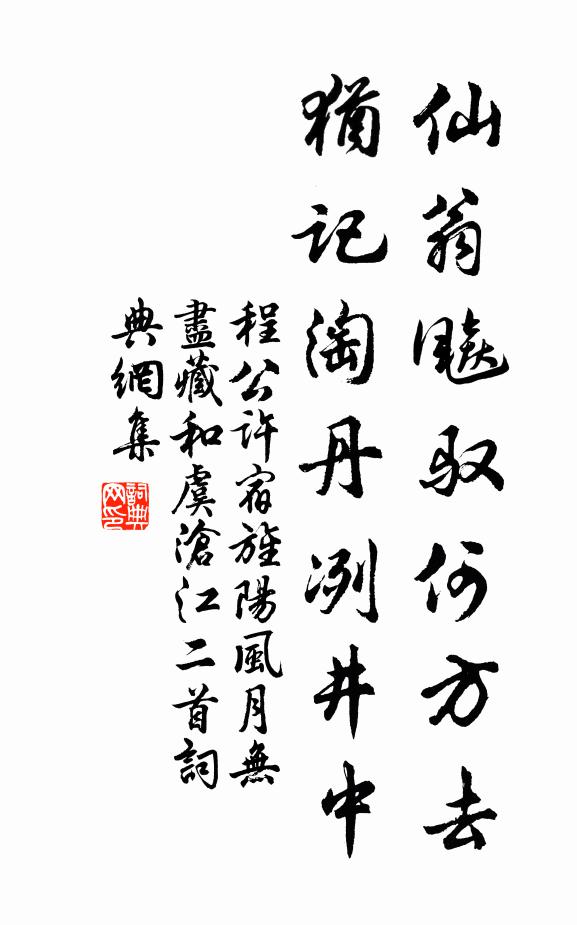 仙翁飈馭何方去
猶記淘丹冽井中
程公許宿旌陽風月無
盡藏和虞滄江二首詞
典網集
詞典網印